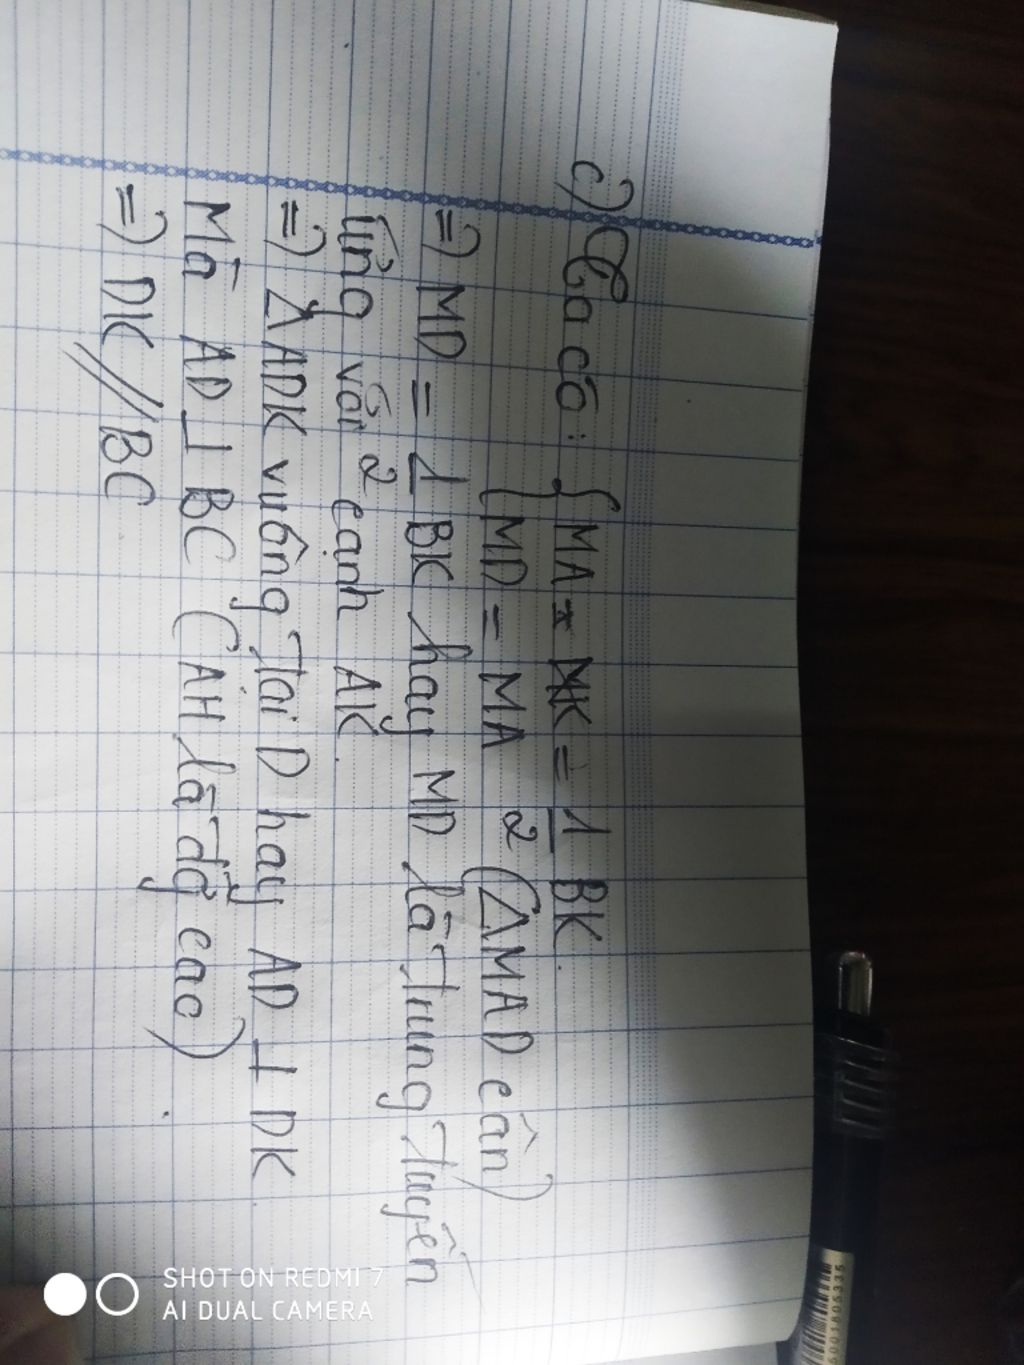 c) Ta có: {MA = MK = 1/2 BK.
{MD = MA (ΔMAD cân)
=> MD = 1/2 BK hay MD là trung tuyến
ứng với cạnh AK.
=> ΔADK vuông tại D hay AD ⊥ DK.
Mà AD ⊥ BC (AH là đg cao).
=> DK // BC
SHOT ON REDMI 7
AI DUAL CAMERA
6001805335